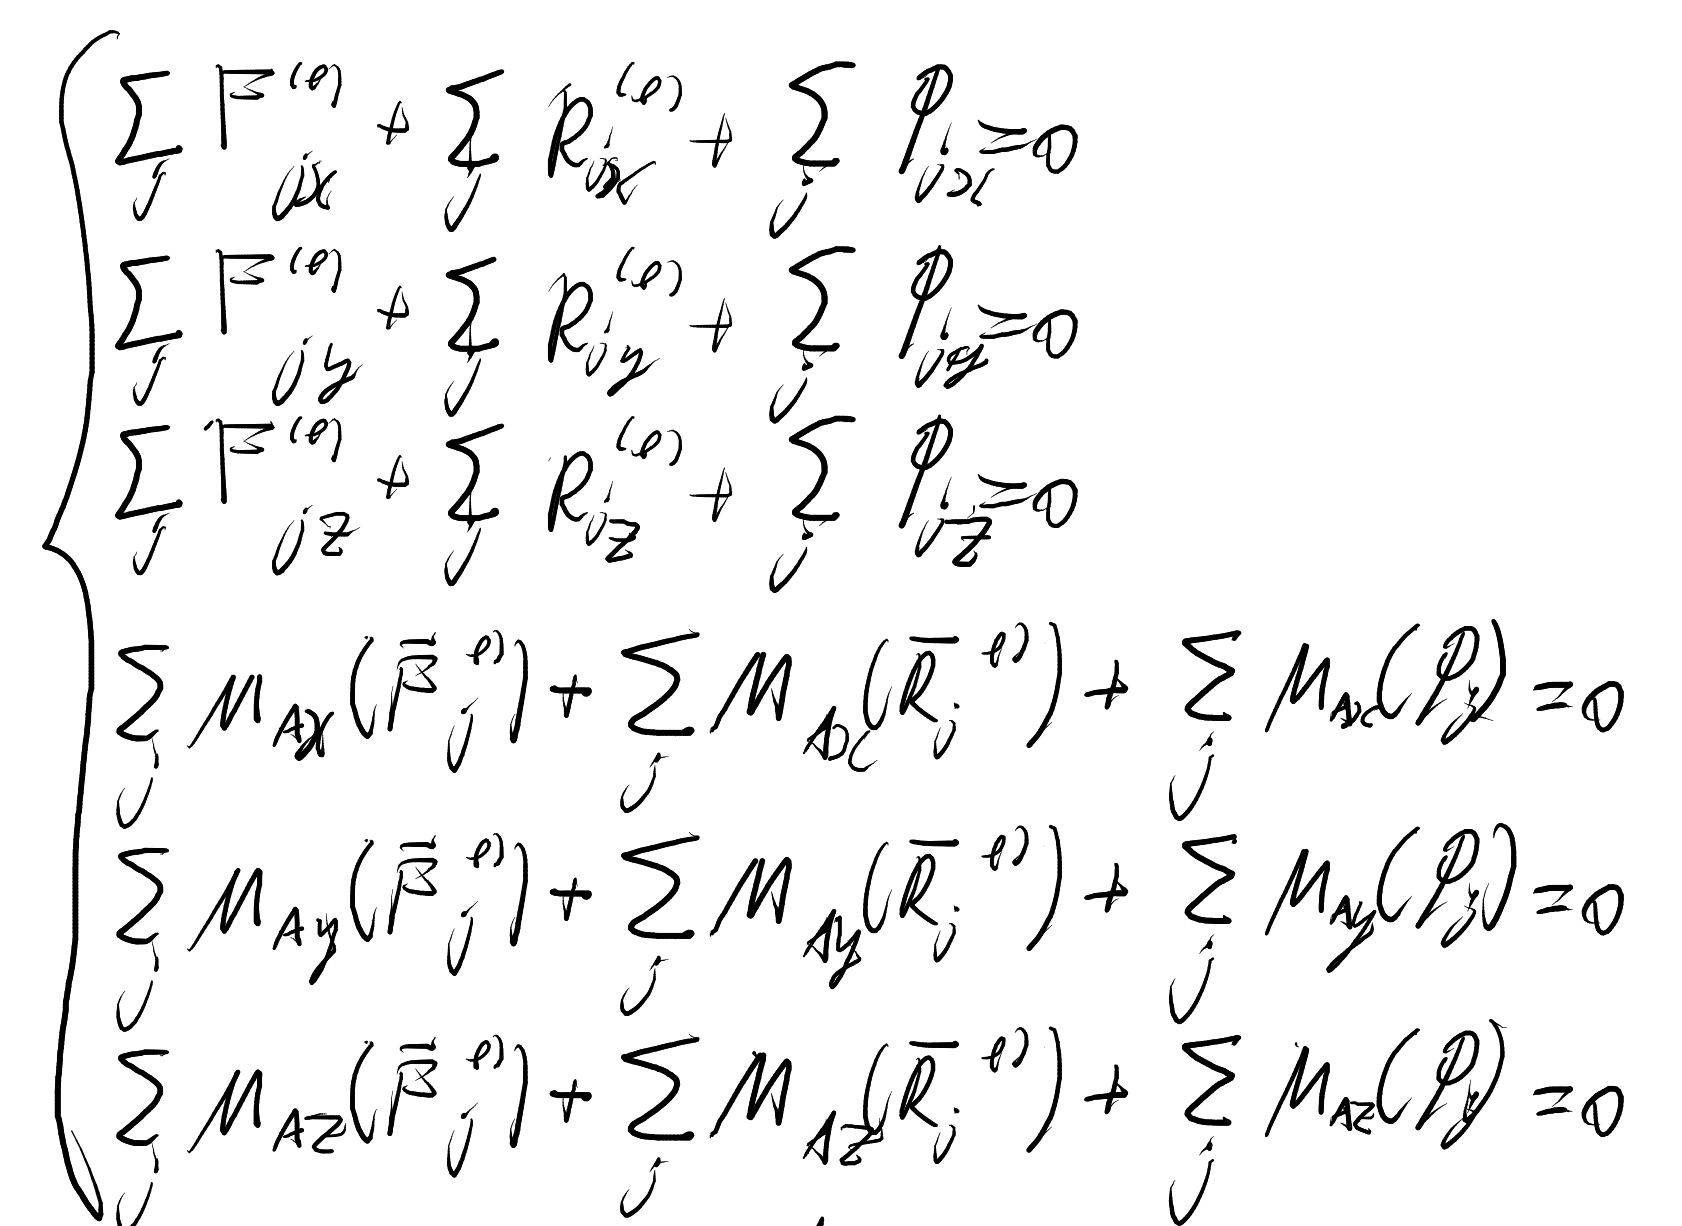 ∑_j F_jx^(e) + ∑_j R_jx^(e) + ∑_j Φ_jx = 0
∑_j F_jy^(e) + ∑_j R_jy^(e) + ∑_j Φ_jy = 0
∑_j F_jz^(e) + ∑_j R_jz^(e) + ∑_j Φ_jz = 0
∑_j M_Ax(F̄_j^(e)) + ∑_j M_Ax(R̄_j^(e)) + ∑_j M_Ax(Φ_j) = 0
∑_j M_Ay(F̄_j^(e)) + ∑_j M_Ay(R̄_j^(e)) + ∑_j M_Ay(Φ_j) = 0
∑_j M_Az(F̄_j^(e)) + ∑_j M_Az(R̄_j^(e)) + ∑_j M_Az(Φ_j) = 0